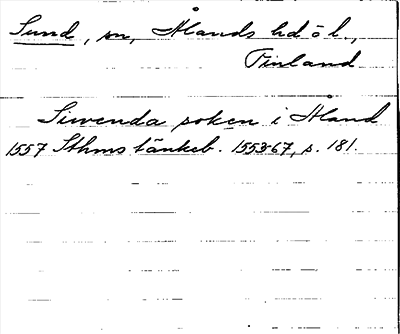 Sund, sn, Ålands hd o l.,
Finland
Siwenda soken i Åland
1557 Sthms tänkeb. 1553-67, s. 181.